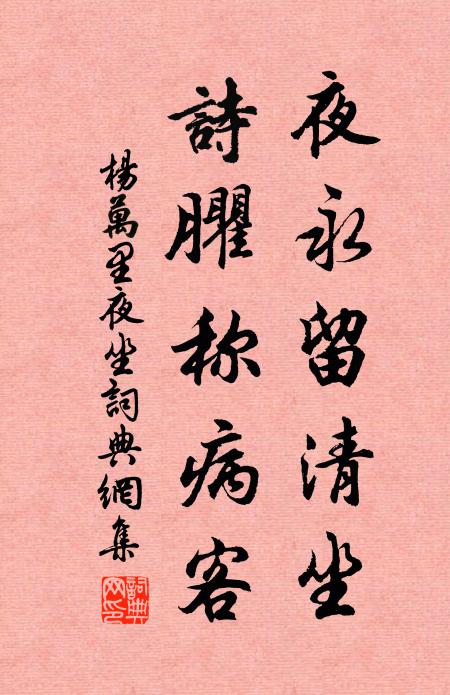 夜永留清坐
詩臞称病客
楊萬里夜坐詞典網集
詞典网印